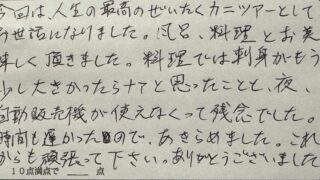 今回は、人生の最高のぜいたくカニツアーとして
お世話になりました。風呂、料理とお美
味しく頂きました。料理では刺身がもう
少し大きかったらナァと思ったことと、夜、
自動販売機が使えなくって残念でした。
時間も遅かったので、あきらめました。これ
からも頑張って下さい。ありがとうございました
10点満点で 点